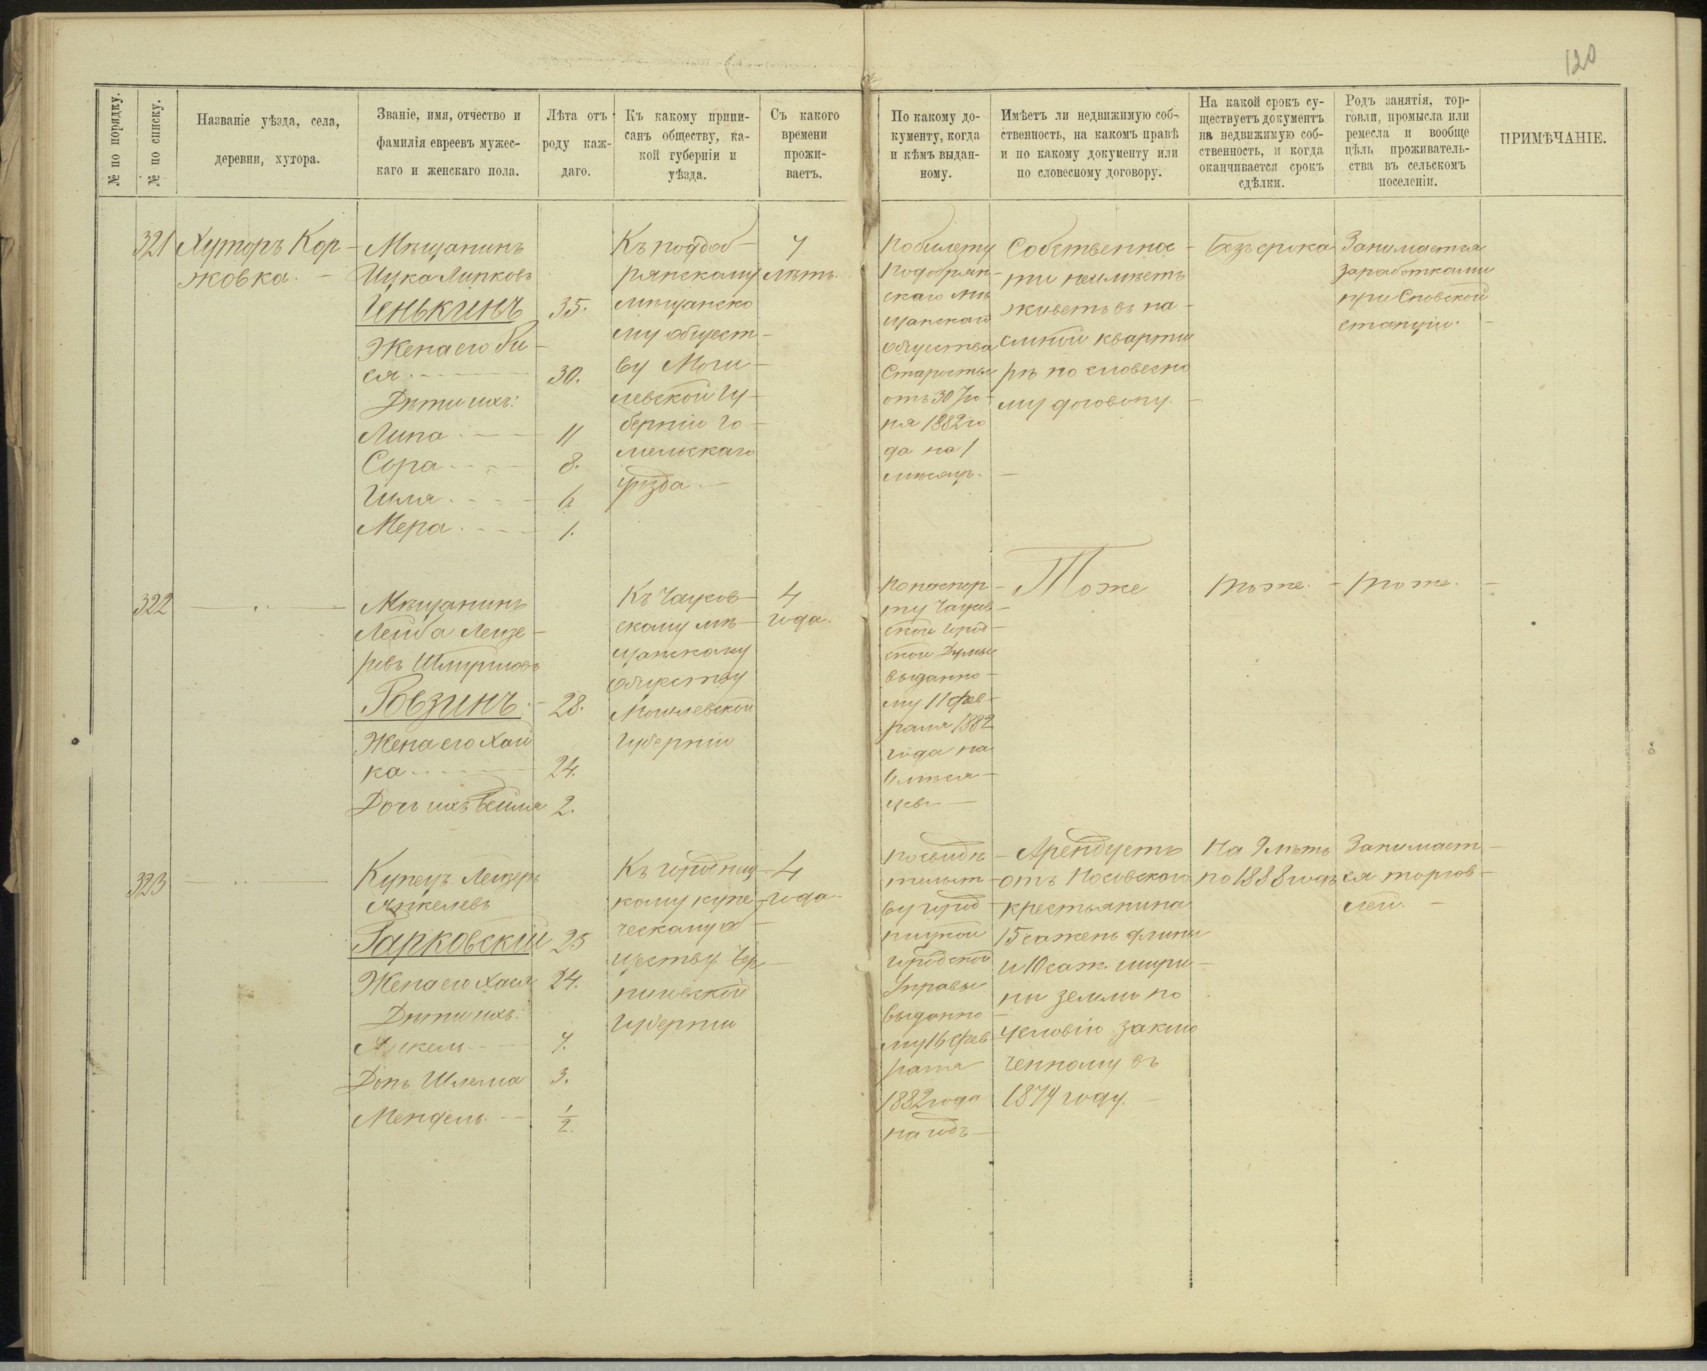 120
№ по порядку.
№ по списку.
Названіе уѣзда, села,
деревни, хутора.
Званіе, имя, отчество и
фамилія евреевъ мужес-
каго и женскаго пола.
Лѣта отъ
роду каж-
даго.
Къ какому припи-
санъ обществу, ка-
кой губерніи и
уѣзда.
Съ какого
времени
прожи-
ваетъ.
По какому до-
кументу, когда
и кѣмъ выдан-
ному.
Имѣетъ ли недвижимую соб-
ственность, на какомъ правѣ
и по какому документу или
по словесному договору.
На какой срокъ су-
ществуетъ документъ
на недвижимую соб-
ственность, и когда
оканчивается срокъ
сдѣлки.
Родъ занятія, тор-
говли, промысла или
ремесла и вообще
цѣль проживатель-
ства въ сельскомъ
поселеніи.
ПРИМѢЧАНІЕ.
321
Хуторъ Кор-
жовка.
Мѣщанинъ
Ицка Липковъ
Генькинъ 35.
Жена его
30.
Дѣти ихъ:
Липа 11
Сора 8.
Гиля
Мера 1.
Къ подоб-
рянскому
мѣщанско
му общест-
ву Моги-
левской Гу-
берніи Го-
мельскаго
уѣзда
7
лѣтъ.
По билету
Подобрян-
скаго мѣ
щанскаго
общества
Старосты
отъ 30 Ію-
ня 1882 го
да на 1
мѣсяцъ.
Собственнос-
ти неимѣетъ
живетъ въ на-
емной кварти
рѣ по словесно
му договору.
Безъ срока
Занимается
заработками
при Носовской
станціи.
322
Мѣщанинъ
Лейба Лейзе-
ровъ Шмуйловъ
Ровзинъ 28.
Жена его Хай
ка 24.
Дочь ихъ 2.
Къ Чаусов-
скому мѣ-
щанскому
обществу
Могилевской
Губерніи
4
года.
По паспор-
ту Чаусов-
ской город-
ской Думы
выданно-
му 11 фев-
раля 1882
года на
6 мѣся-
цевъ
Тоже
тоже.
тоже.
323
Купецъ Лейзеръ
Янкелевъ
Гарковскій 25
Жена его Хася 24.
Дѣти ихъ:
Янкель 7.
Дочь Шлема 3.
Мендель 1/2.
Къ городниц-
кому купе-
ческому об-
ществу Чер-
ниговской
Губерніи
4
года
По свидѣ-
тельст-
ву город-
ницкой
городской
Управы
выданно-
му 16 фев
раля
1882 года
на годъ
Арендуетъ
отъ Носовскаго
крестьянина
15 сажень длины
и 10 саж. шири-
ны земли по
условію заклю
ченному въ
1879 году.
На 9 лѣтъ
по 1888 годъ
Занимает-
ся торгов-
лей.